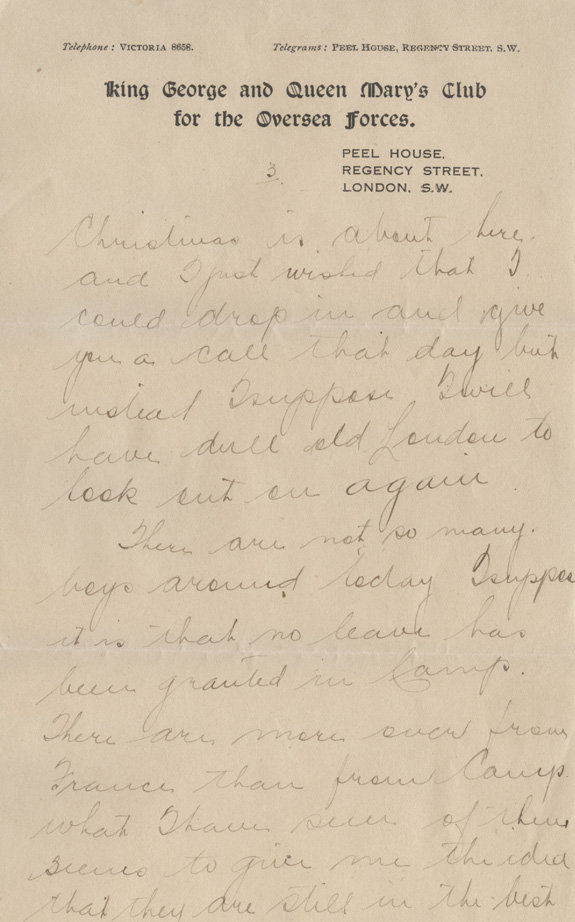 Telephone : VICTORIA 8658. Telegrams : PEEL HOUSE, REGENCY STREET. S.W.
King George and Queen Mary's Club
for the Oversea Forces.
PEEL HOUSE,
REGENCY STREET,
LONDON. S.W.
3.
Christmas is about here.
and I just wished that I
could drop in and give
you a call that day but
instead I suppose I will
have dull old London to
look out on again
There are not so many.
boys around today I suppos
it is that no leave has
been granted in Camp.
There are more over from
France than from Camp.
what I have seen of them
seems to give me the idea
that they are still in the best